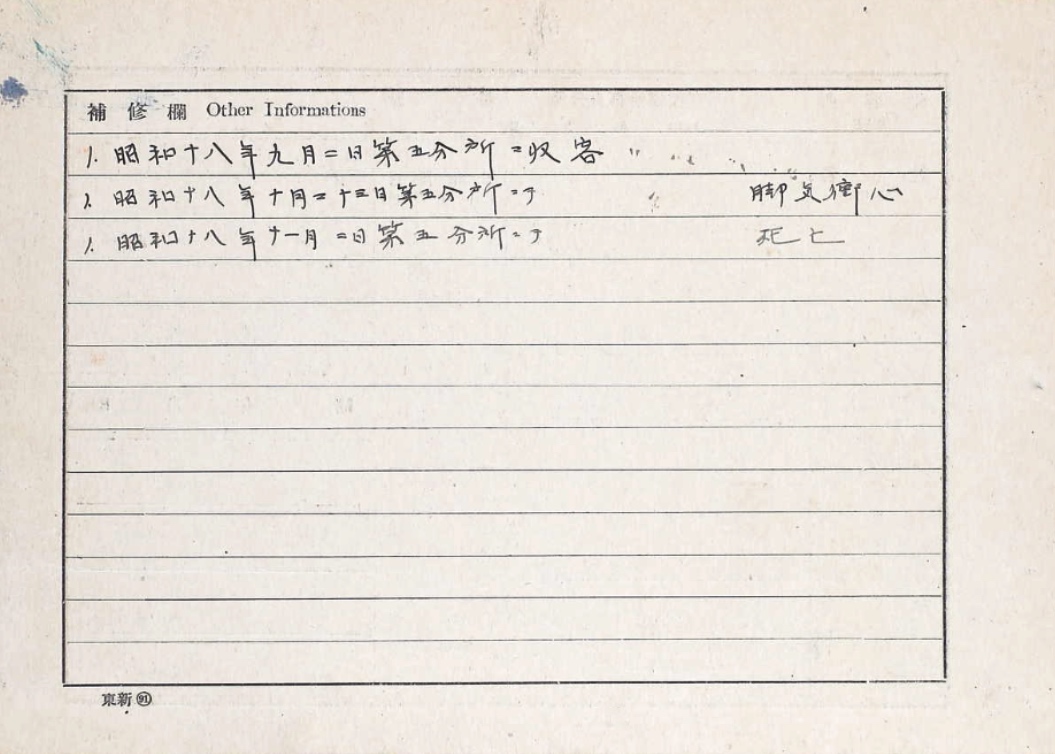 補修欄 Other Informations
1. 昭和十八年九月二日第五分所ニ収容
1. 昭和十八年十月二十三日第五分所ニテ 脚気衝心
1. 昭和十八年十一月二日第五分所ニテ 死亡
東新91